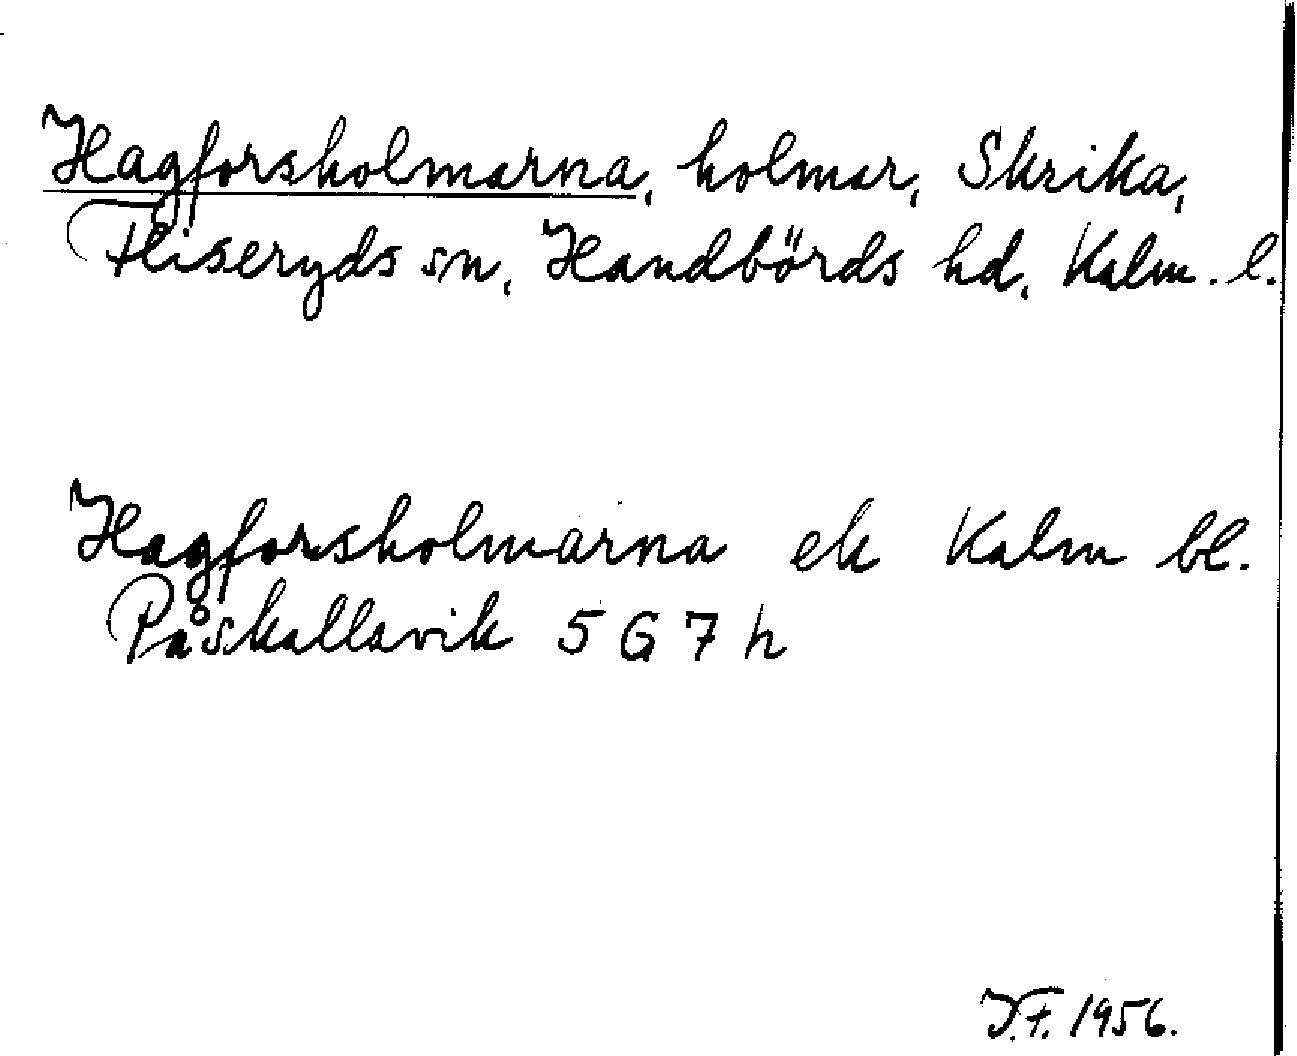 Hagforsholmarna, holmar, Skrika,
Fliseryds sn, Handbörds hd, Kalm. l.
Hagforsholmarna ek Kalm bl.
Påskallavik 5 G 7 h
J.F. 1956.